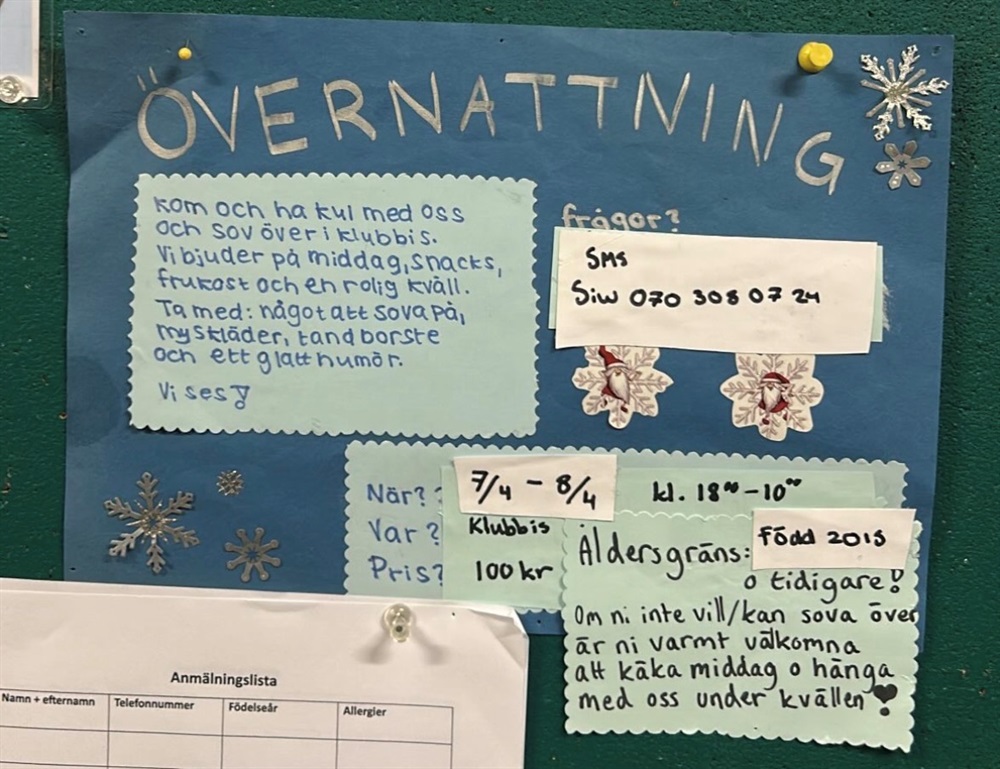 ÖVERNATTNING
Kom och ha kul med oss
och sov över i klubbis.
Vi bjuder på middag, snacks,
frukost och en rolig kväll.
Ta med: något att sova på,
myskläder, tandborste
och ett glatt humör.
Vi ses!
frågor?
SMS
Siw 070 308 07 24
När? 7/4 - 8/4 kl. 18⁰⁰-10⁰⁰
Var? Klubbis
Pris? 100 kr
Åldersgräns: Född 2015
o tidigare!
Om ni inte vill/kan sova över
är ni varmt välkomna
att käka middag o hänga
med oss under kvällen!
Anmälningslista
Namn + efternamn Telefonnummer Födelseår Allergier